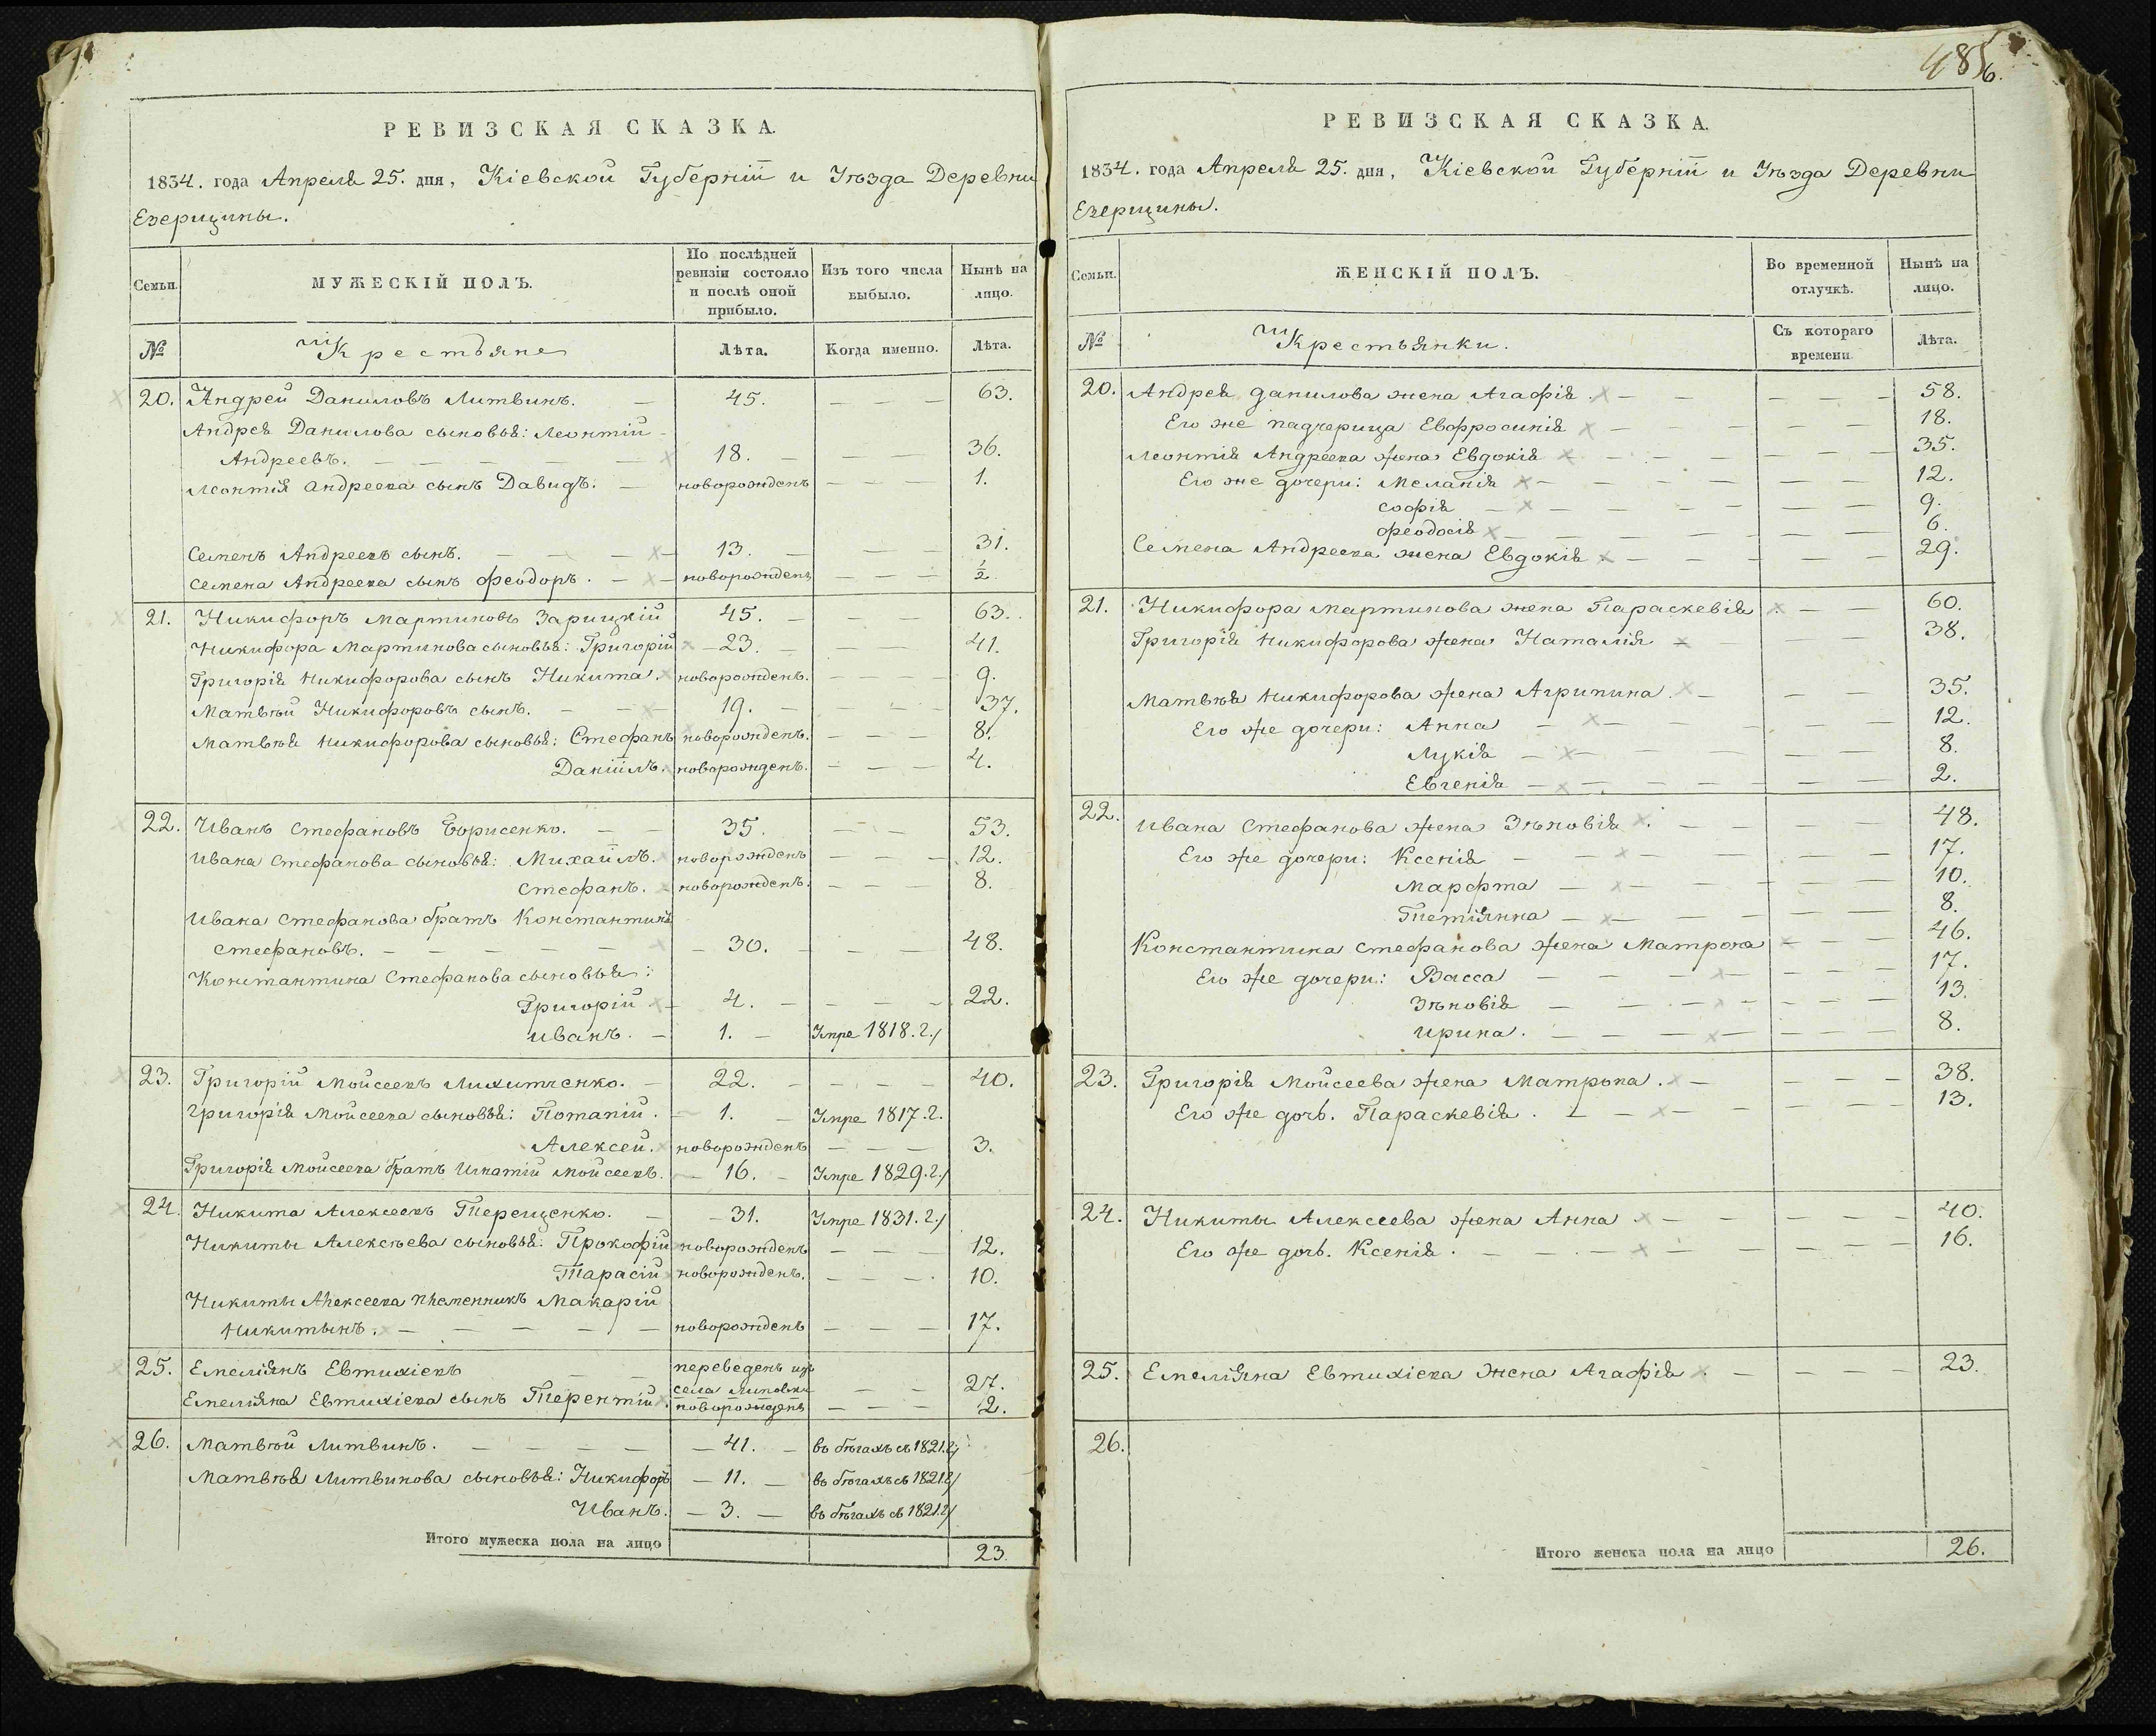 РЕВИЗСКАЯ СКАЗКА.
1834. года Апреля 25. дня, Кіевской Губерніи и Уѣзда Деревни
Езерщины.
Семьи.
МУЖЕСКІЙ ПОЛЪ.
По послѣдней ревизіи состояло и послѣ оной прибыло.
Изъ того числа выбыло.
Нынѣ на лицо.
№
Крестьяне
Лѣта.
Когда именно.
Лѣта.
20. Андрей Даниловъ Литвинъ. — 45. — — — 63.
Андрея Данилова сыновья: Леонтій
Андреевъ. — 18. — — — 36.
Леонтія Андреева сынъ Давидъ. — новорожденъ — — — 1.
Семенъ Андреевъ сынъ. — 13. — — — 31.
Семена Андреева сынъ Феодоръ. — новорожденъ — — — ½.
21. Никифоръ Мартиновъ Зарицкій 45. — — — 63.
Никифора Мартинова сыновья: Григорій — 23. — — — 41.
Григорія Никифорова сынъ Никита. новорожденъ. — — — 9.
Матвѣй Никифоровъ сынъ. — 19. — — — 37.
Матвѣя Никифорова сыновья: Стефанъ новорожденъ. — — — 8.
Даніилъ. новорожденъ. — — — 4.
22. Иванъ Стефановъ Борисенко. — 35. — — 53.
Ивана Стефанова сыновья: Михаилъ. новорожденъ — — — 12.
Стефанъ. новорожденъ. — — — 8.
Ивана Стефанова братъ Константинъ
Стефановъ. — 30. — — — 48.
Константина Стефанова сыновья:
Григорій — 4. — — — 22.
Иванъ. — 1. — Умре 1818. г./
23. Григорій Мойсеевъ Лихитченко. — 22. — — — 40.
Григорія Мойсеева сыновья: Потапій. — 1. — Умре 1817. г.
Алексей. новорожденъ — — — 3.
Григорія Мойсеева братъ Игнатій Мойсеевъ. — 16. — Умре 1829. г./
24. Никита Алексеевъ Терещенко. — 31. Умре 1831. г./
Никиты Алексѣева сыновья: Прокофій новорожденъ — — — 12.
Тарасій новорожденъ. — — — 10.
Никиты Алексеева племенникъ Макарій
Никитынъ. — новорожденъ — — — 17.
25. Емеліянъ Евтихіевъ переведенъ изъ
села Липовки — — 27.
Емеліяна Евтихіева сынъ Терентій. новорожденъ — — — 2.
26. Матвѣй Литвинъ. — 41. — въ бѣгахъ съ 1821. г./
Матвѣя Литвинова сыновья: Никифоръ — 11. — въ бѣгахъ съ 1821. г/
Иванъ. — 3. — въ бѣгахъ съ 1821. г/
Итого мужеска пола на лицо 23.
485
6.
РЕВИЗСКАЯ СКАЗКА.
1834. года Апреля 25. дня, Кіевской Губерніи и Уѣзда Деревни
Езерщины.
Семьи.
ЖЕНСКІЙ ПОЛЪ.
Во временной отлучкѣ.
Нынѣ на лицо.
№
Крестьянки.
Съ котораго времени.
Лѣта.
20. Андрея Данилова жена Агафія. — — — 58.
Его же падчерица Евфросинія — — — 18.
Леонтія Андреева жена Евдокія — — — 35.
Его же дочери: Меланія — — — 12.
Софія — — — 9.
Феодосія — — — 6.
Семена Андреева жена Евдокія — — — 29.
21. Никифора Мартинова жена Параскевія — — 60.
Григорія Никифорова жена Наталія — — 38.
Матвѣя Никифорова жена Агрипина. — — — 35.
Его же дочери: Анна — — — 12.
Лукія — — — 8.
Евгенія — — — 2.
22. Ивана Стефанова жена Зѣновія. — — — 48.
Его же дочери: Ксенія — — — 17.
Марфта — — — 10.
Тетіянна — — — 8.
Константина Стефанова жена Матрона — — — 46.
Его же дочери: Васса — — — 17.
Зѣновія — — — 13.
Ирина. — — — 8.
23. Григорія Мойсеева жена Матрона. — — — 38.
Его же дочь. Параскевія. — — — 13.
24. Никиты Алексеева жена Анна — — — 40.
Его же дочь. Ксенія. — — — 16.
25. Емеліяна Евтихіева жена Агафія — — — 23.
26.
Итого женска пола на лицо 26.